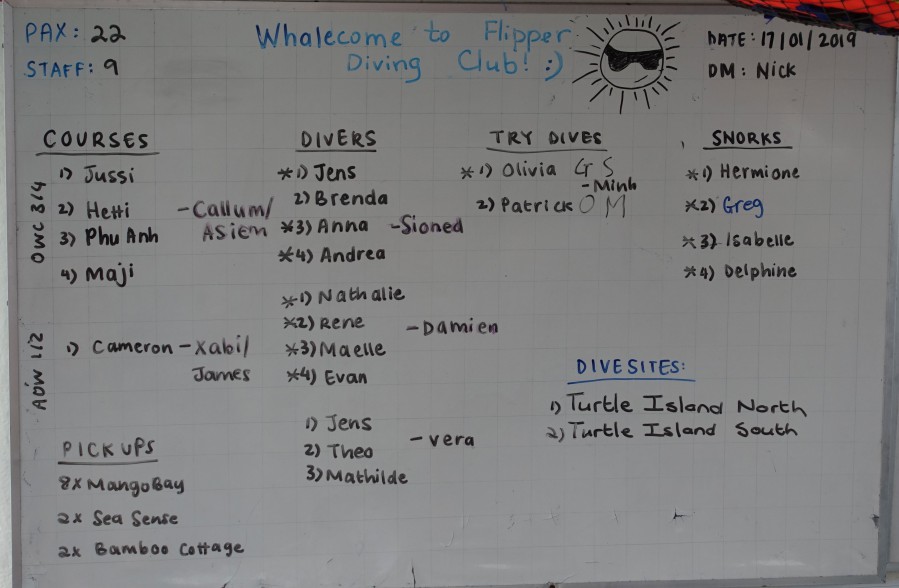 PAX: 22
STAFF: 9
Whalecome to Flipper
Diving Club! :)
DATE: 17/01/2019
DM: Nick
COURSES
OWC 3/4
1) Jussi
2) Hetti
3) Phu Anh
4) Maji
- Callum/
ASIEM
AOW 1/2
1) Cameron - Xabi/
James
PICK UPS
8x Mango Bay
2x Sea Sense
2x Bamboo Cottage
DIVERS
*1) Jens
2) Brenda
*3) Anna
*4) Andrea
- Sioned
*1) Nathalie
*2) Rene
*3) Maelle
*4) Evan
- Damien
1) Jens
2) Theo
3) Mathilde
- Vera
TRY DIVES
*1) Olivia G S
- Minh
2) Patrick O M
SNORKS
*1) Hermione
*2) Greg
*3) Isabelle
*4) Delphine
DIVESITES:
1) Turtle Island North
2) Turtle Island South